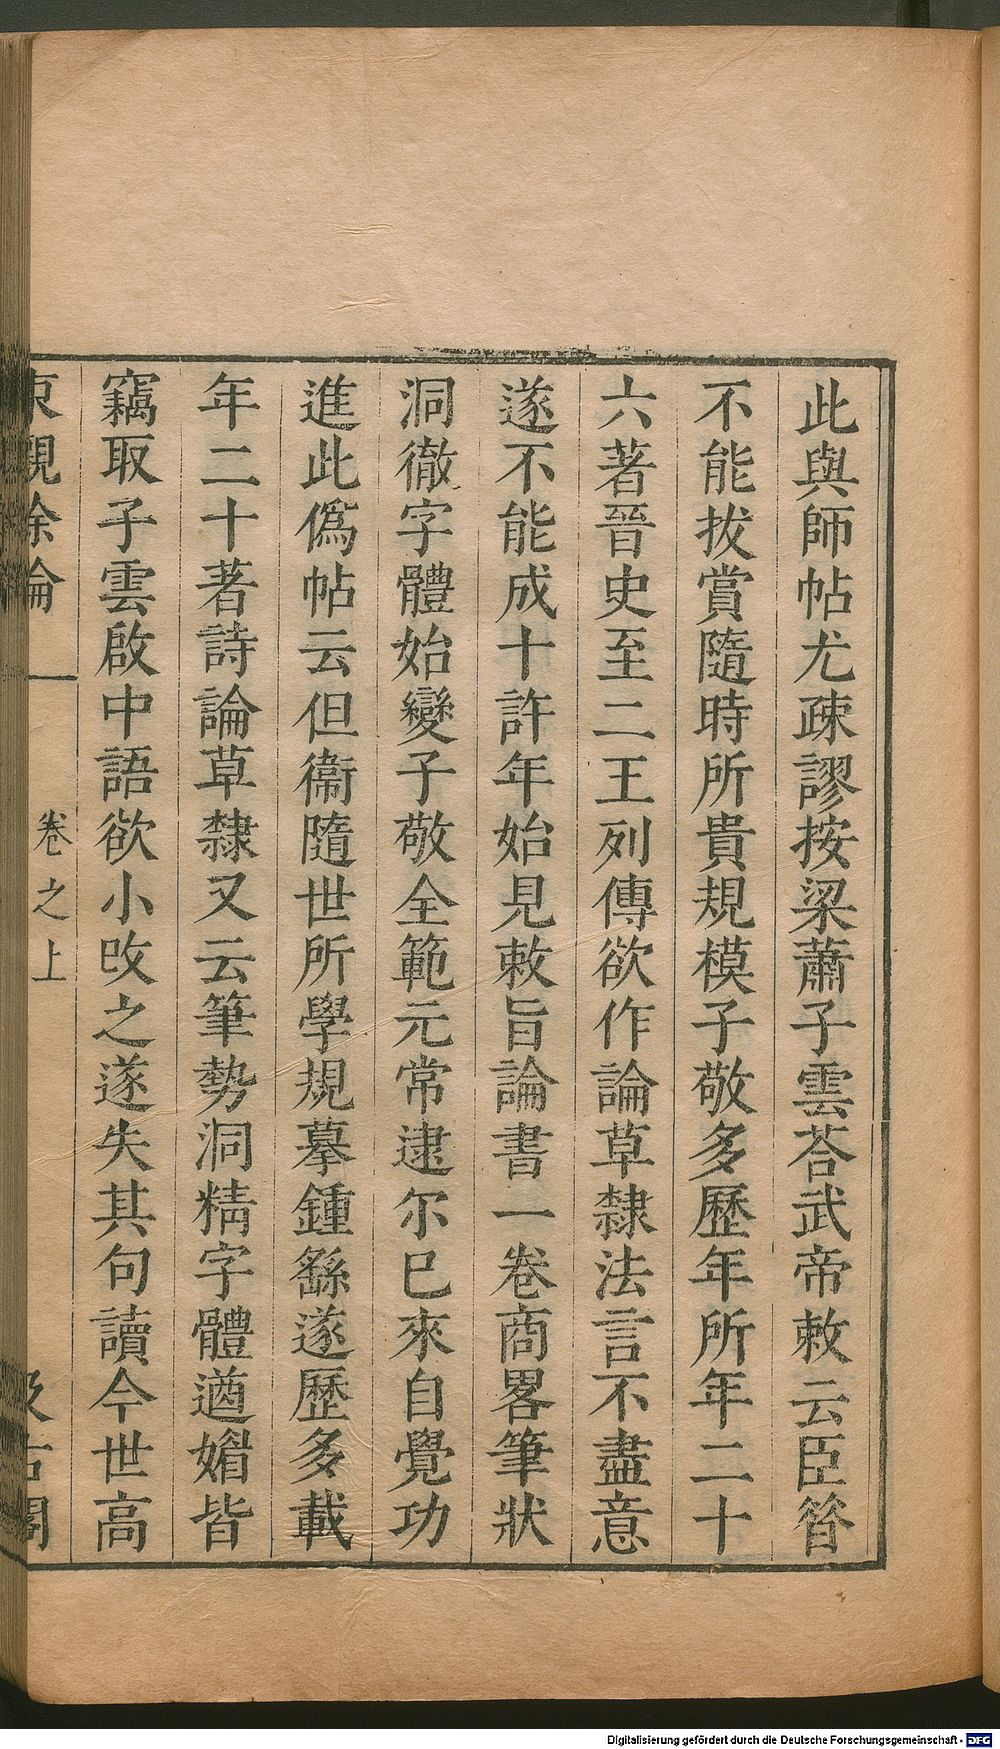 此與師帖尤疎謬按梁蕭子雲荅武帝敕云臣昝
不能拔賞隨時所貴規模子敬多歷年所年二十
六著晉史至二王列傳欲作論草隸法言不盡意
遂不能成十許年始見敕旨論書一卷商畧筆狀
洞徹字體始變子敬全範元常逮尔巳來自覺功
進此僞帖云但衞隨世所學規摹鍾繇遂歷多載
年二十著詩論草隸又云筆勢洞精字體遒媚皆
竊取子雲啟中語欲小攺之遂失其句讀今世高
東觀餘論 卷之上 汲古閣
Digitalisierung gefördert durch die Deutsche Forschungsgemeinschaft - DFG